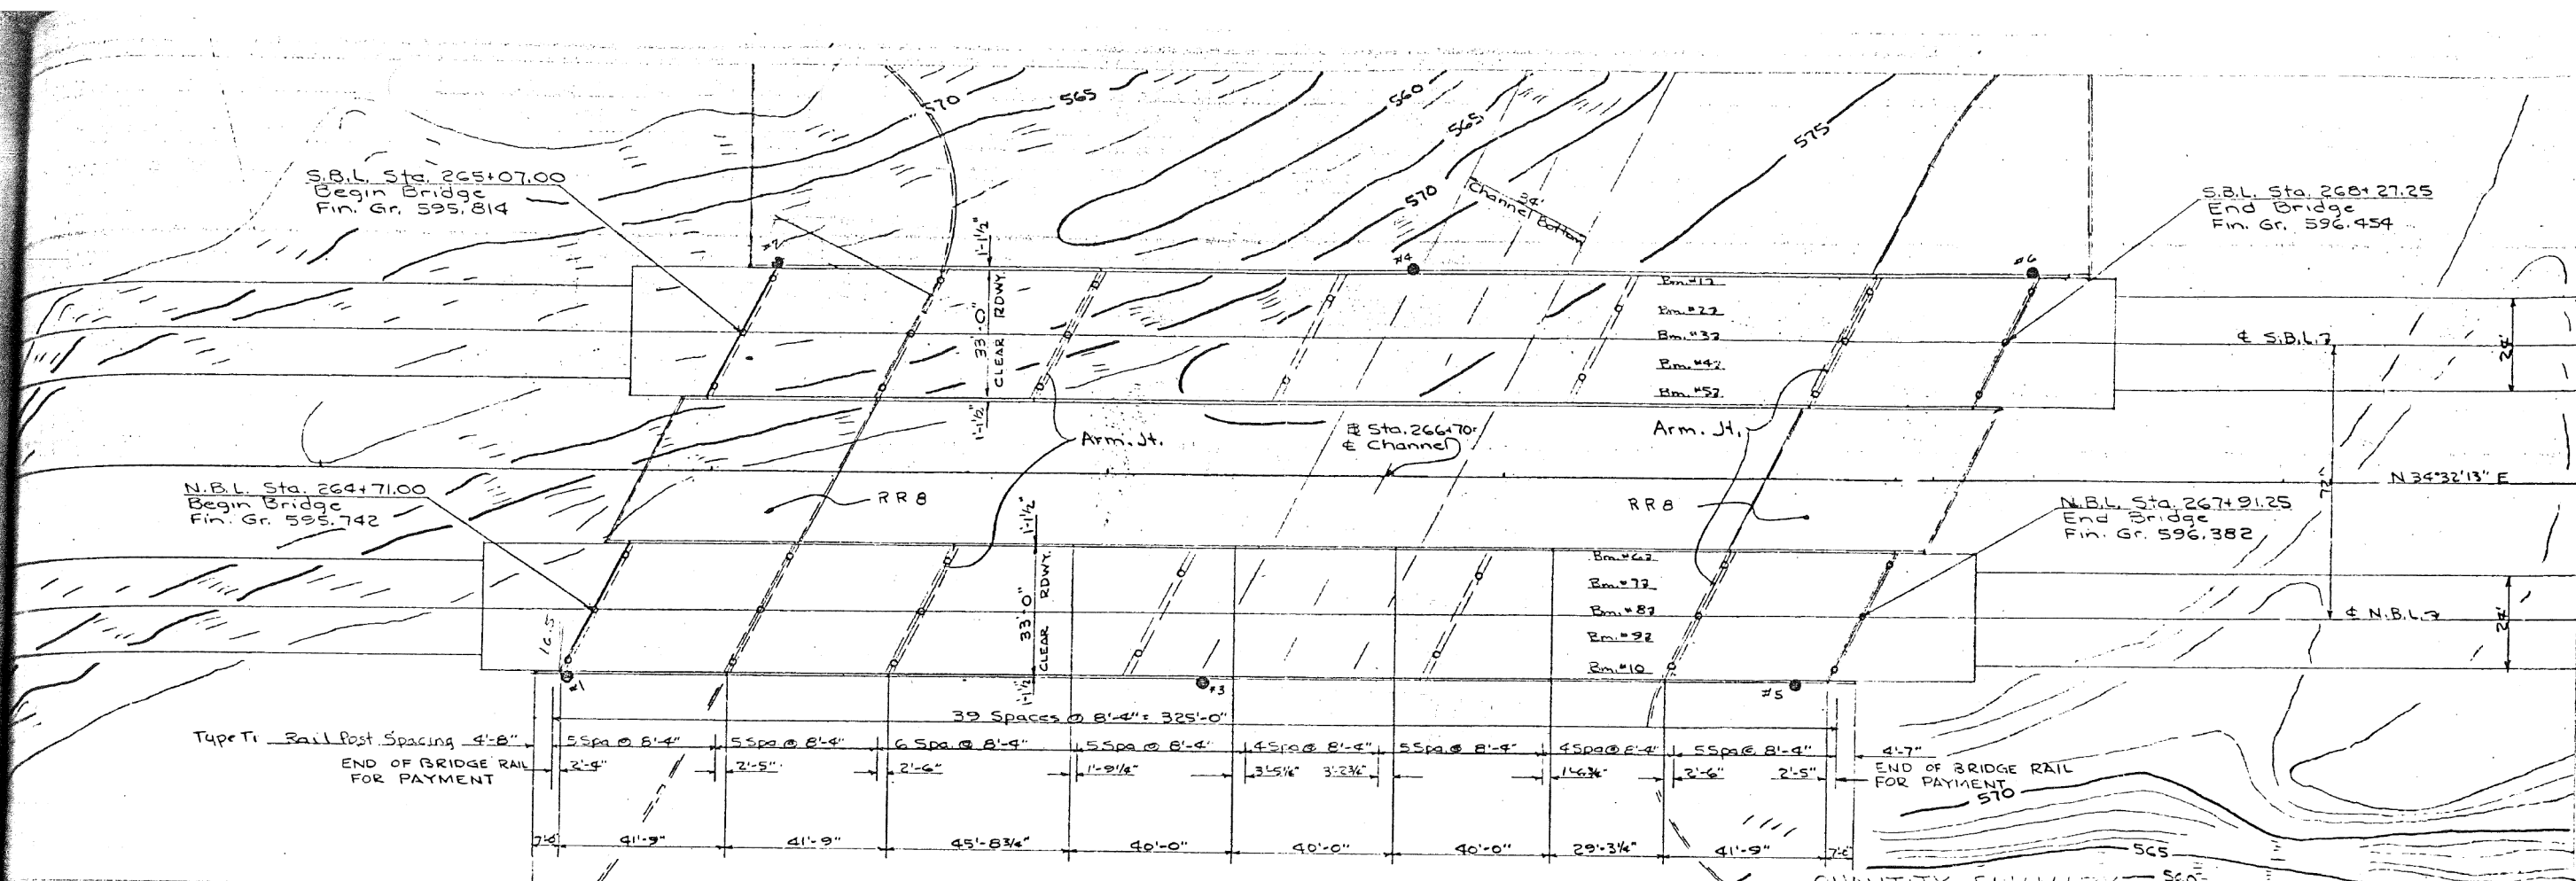 570
565
560
565
575
570
34'
Channel Bottom
S.B.L. Sta. 265+07.00
Begin Bridge
Fin. Gr. 595.814
S.B.L. Sta. 268+27.25
End Bridge
Fin. Gr. 596.454
#2
#4
#6
1'-1½"
33'-0"
CLEAR RDWY.
1'-1½"
Bm.#1
Bm.#2
Bm.#3
Bm.#4
Bm.#5
℄ S.B.L.
24'
Arm. Jt.
Sta. 266+70
℄ Channel
Arm. Jt.
72'
N 34°32'13" E
N.B.L. Sta. 264+71.00
Begin Bridge
Fin. Gr. 595.742
RR8
RR8
N.B.L. Sta. 267+91.25
End Bridge
Fin. Gr. 596.382
1'-1½"
33'-0"
CLEAR RDWY.
1'-1½"
16.5
Bm.#6
Bm.#7
Bm.#8
Bm.#9
Bm.#10
℄ N.B.L.
24'
#1
#3
#5
39 Spaces @ 8'-4" = 325'-0"
Type T1 Rail Post Spacing 4'-8" 5 Spa @ 8'-4" 5 Spa @ 8'-4" 6 Spa. @ 8'-4" 5 Spa @ 8'-4" 4 Spa @ 8'-4" 5 Spa. @ 8'-4" 4 Spa @ 8'-4" 5 Spa @ 8'-4" 4'-7"
END OF BRIDGE RAIL
FOR PAYMENT
2'-4" 2'-5" 2'-6" 1'-9¼" 3'-5⅛" 3'-2¾" 1'-6¾" 2'-6" 2'-5"
END OF BRIDGE RAIL
FOR PAYMENT
570
41'-9" 41'-9" 45'-8¾" 40'-0" 40'-0" 40'-0" 29'-3¼" 41'-9"
565
560